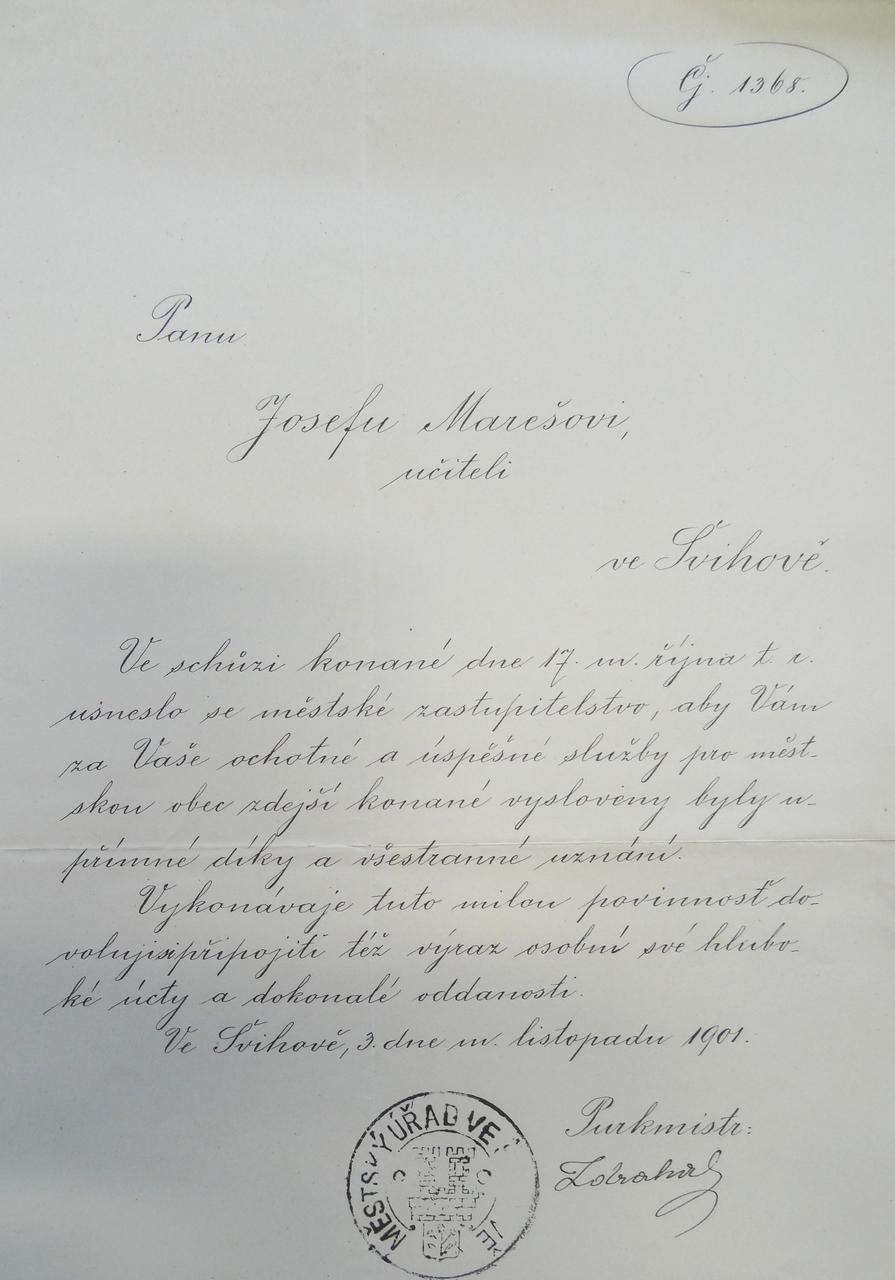 Čj. 1368.
Panu
Josefu Marešovi,
učiteli
ve Švihově.
Ve schůzi konané dne 17. m. října t. r.
usneslo se městské zastupitelstvo, aby Vám
za Vaše ochotné a úspěšné služby pro měst-
skou obec zdejší konané vysloveny byly u-
přímné díky a všestranné uznání.
Vykonávaje tuto milou povinnosť do-
voluji si připojiti též výraz osobní své hlubo-
ké úcty a dokonalé oddanosti.
Ve Švihově, 3. dne m. listopadu 1901.
Purkmistr:
MĚSTSKÝ ÚŘAD VE